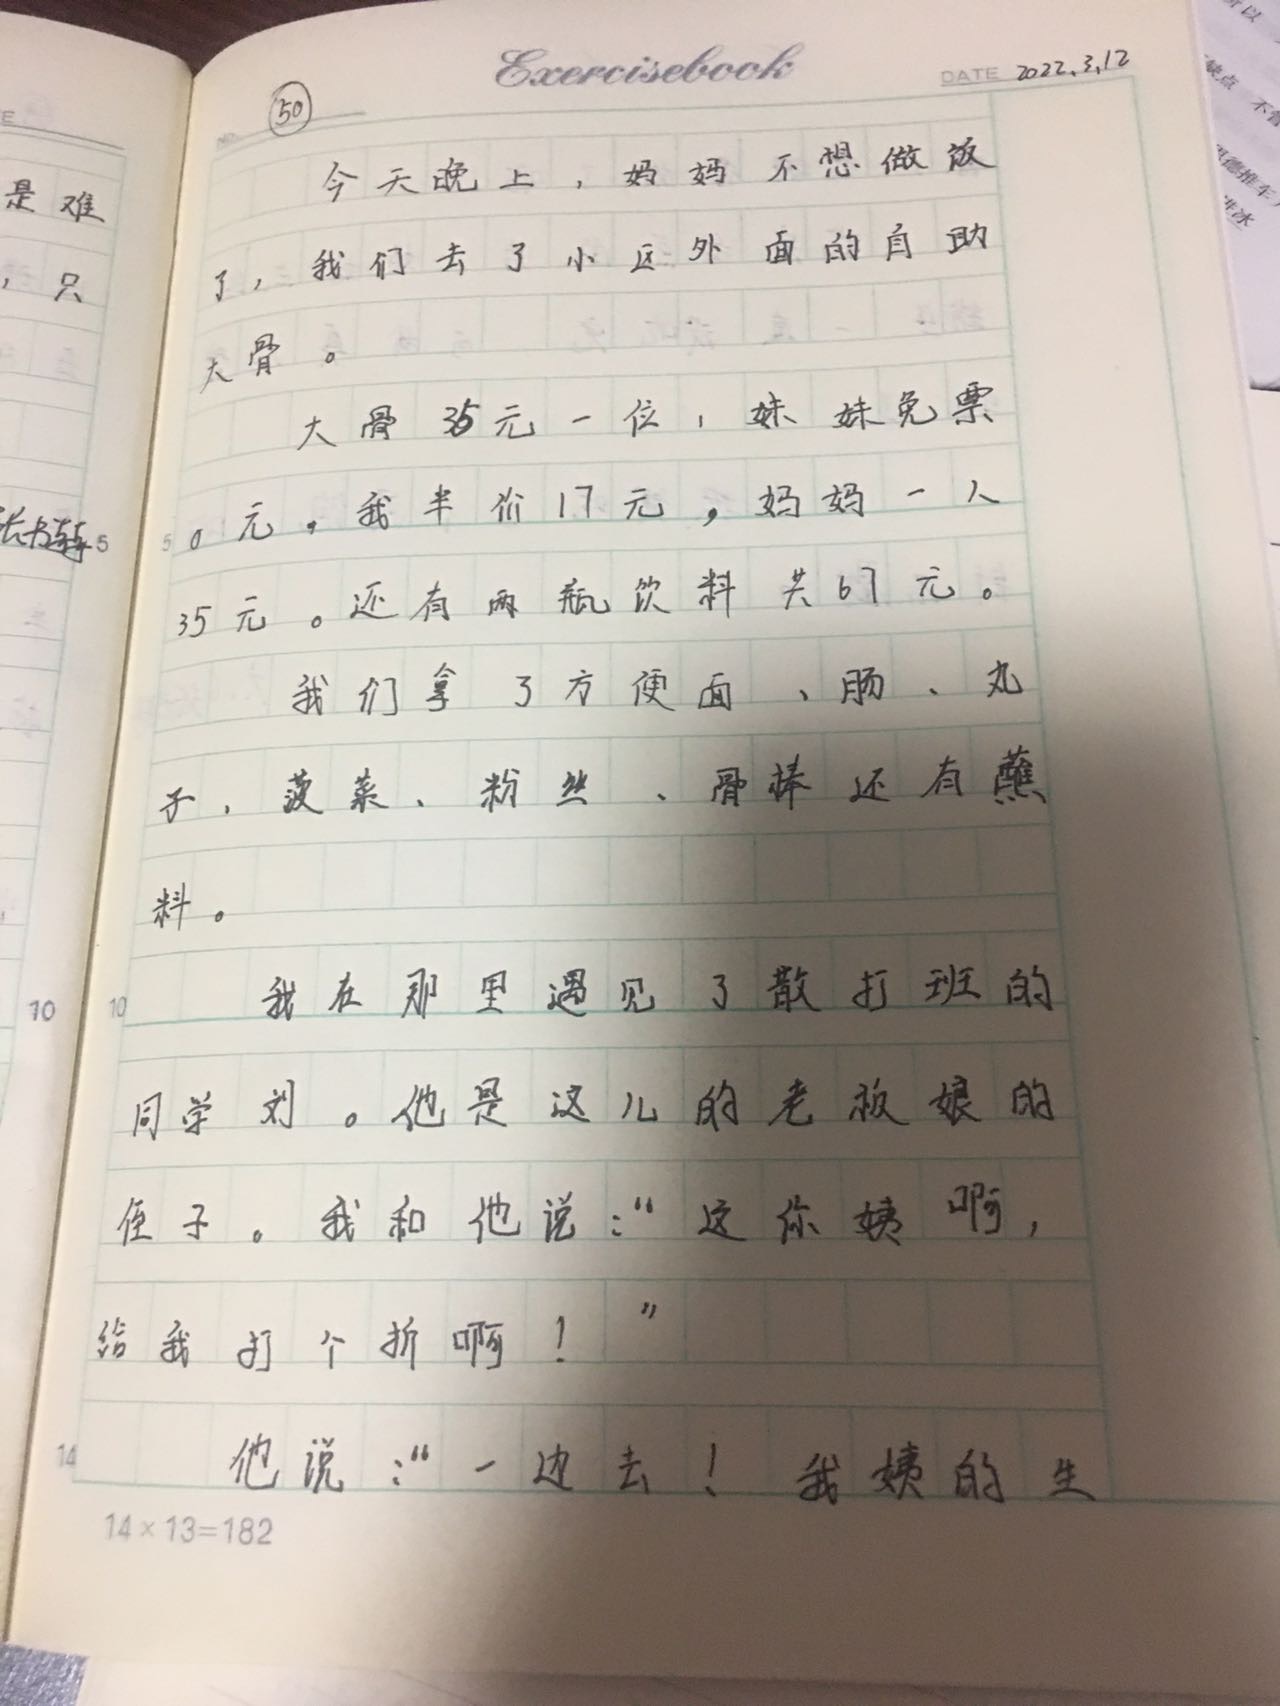 Exercisebook
DATE 2022.3.12
50
NO.
今天晚上，妈妈不想做饭
了，我们去了小区外面的自助
大骨。
大骨35元一位，妹妹免票
0元，我半价17元，妈妈一人
35元。还有两瓶饮料共67元。
我们拿了方便面、肠、丸
子、菠菜、粉丝、骨棒还有蘸
料。
我在那里遇见了散打班的
同学刘。他是这儿的老板娘的
侄子。我和他说：“这你姨啊，
给我打个折啊！”
他说：“一边去！我姨的生
5
10
14
14×13=182
是难
，只
5
10
缺点 不管